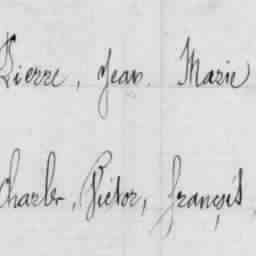 Pierre, Jean Marie
Charles, Victor, françois,